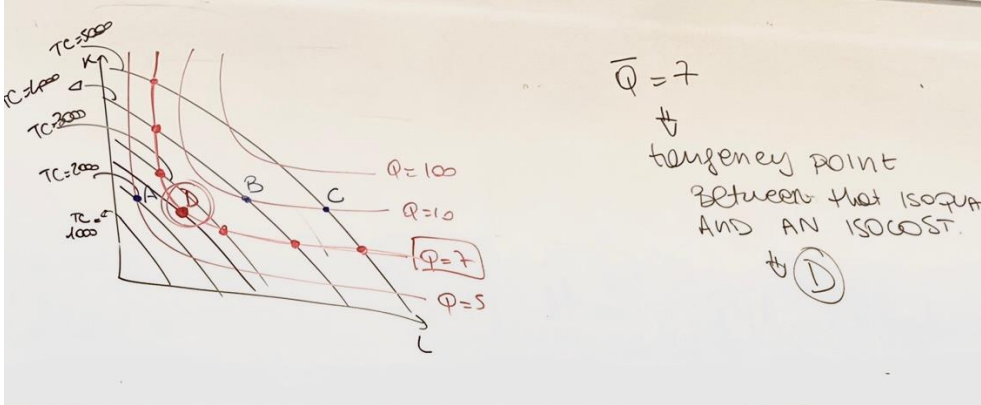 TC=5000
K
TC=4000
TC=3000
TC=2000
TC=
1000
A
D
B
C
Q=100
Q=10
Q=7
Q=5
L
Q̅=7
tangency point
Between that ISOQUA
AND AN ISOCOST.
D